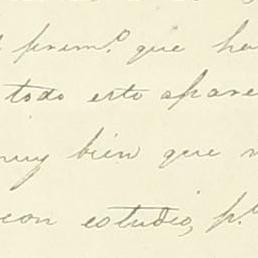 primº que ha
todo esto apare
muy bien que
con estudio, p.ª